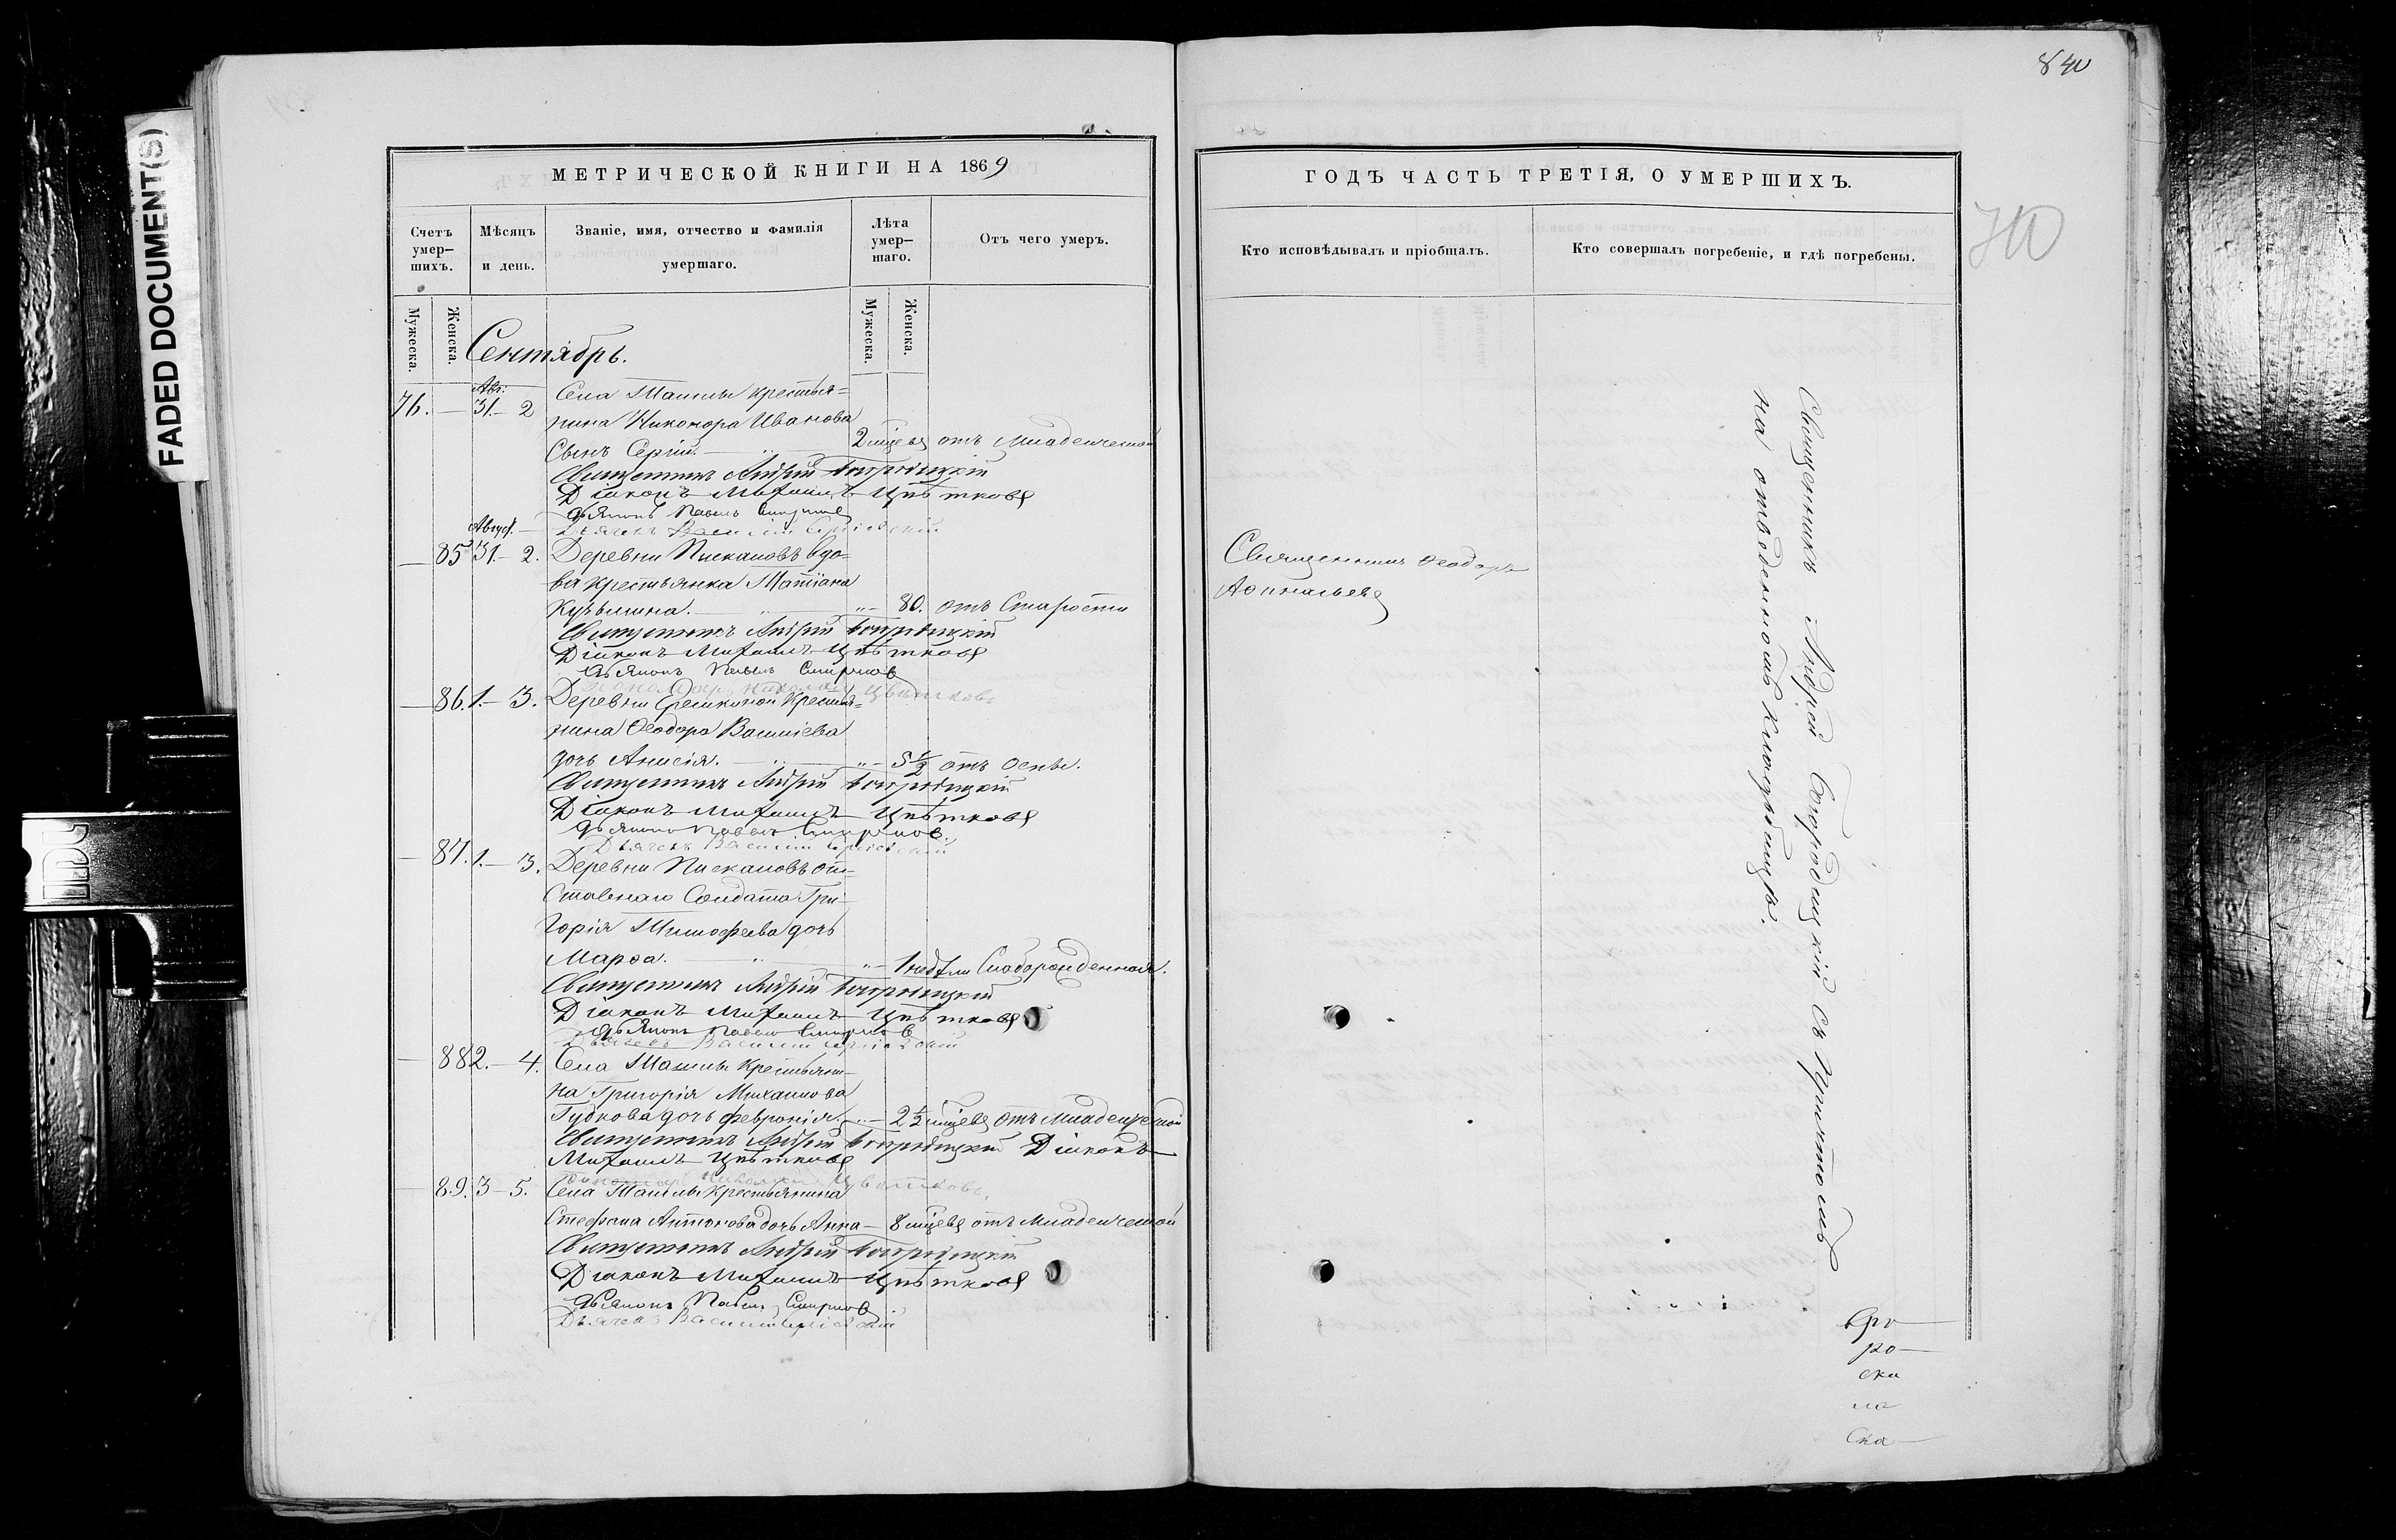 840
FADED DOCUMENT(S)
МЕТРИЧЕСКОЙ КНИГИ НА 1869
Счетъ умер-шихъ.
Мѣсяцъ и день.
Званіе, имя, отчество и фамилія умершаго.
Лѣта умер-шаго.
Отъ чего умеръ.
Мужеска.
Женска.
Мужеска.
Женска.
Сентябрь.
76. — Авг: 31. — 2 Села крестья=
нина Никонора Иванова
Сынъ Сергій. — 2 мцевъ отъ младенческой
Священникъ Андрей Богородицкій
Діаконъ Михаилъ Цвѣтковъ
Дьячокъ Павелъ Смирновъ
Дьячекъ Василій Сергіевскій
— 85 Август. 31. — 2. Деревни Пискаловъ вдо=
ва крестьянка Татіана
Кузьмина. — 80. отъ Старости
Священникъ Андрей Богородицкій
Діаконъ Михаилъ Цвѣтковъ
Дьячокъ Павелъ Смирновъ
Пономарь Николай Цвѣтковъ
— 86. 1. — 3. Деревни Крестья=
нина Ѳеодора Василіева
дочь Анисія. — 5 1/2 отъ Оспы.
Священникъ Андрей Богородицкій
Діаконъ Михаилъ Цвѣтковъ
Дьячокъ Павелъ Смирновъ.
Дьячекъ Василій Сергіевскій
— 87. 1. — 3. Деревни Пискаловъ от=
ставнаго Солдата Гри-
горія Тимоѳеева дочь
Марѳа. — 1 недѣли Слаборожденная.
Священникъ Андрей Богородицкій
Діаконъ Михаилъ Цвѣтковъ
Дьячокъ Павелъ Смирновъ
Дьячекъ Василій Сергіевскій
— 88 2. — 4. Села Крестьяни-
на Григорія Михаилова
Гудкова дочь Февронія. — 2 1/2 мцевъ отъ младенческой
Священникъ Андрей Богородицкій Діаконъ
Михаилъ Цвѣтковъ
Пономарь Николай Цвѣтковъ.
— 89. 3 — 5. Села Крестьянина
Стефана Антонова дочь Анна — 8 мцевъ отъ младенческой
Священникъ Андрей Богородицкій
Діаконъ Михаилъ Цвѣтковъ
Дьячокъ Павелъ Смирновъ
Дьячекъ Василій Сергіевскій
ГОДЪ ЧАСТЬ ТРЕТІЯ, О УМЕРШИХЪ.
Кто исповѣдывалъ и пріобщалъ.
Кто совершалъ погребеніе, и гдѣ погребены.
Священникъ Ѳеодоръ
Священникъ Андрей Богородицкій съ Причтомъ
на отведенномъ кладбищѣ.
ро-
ска
ла
Ска